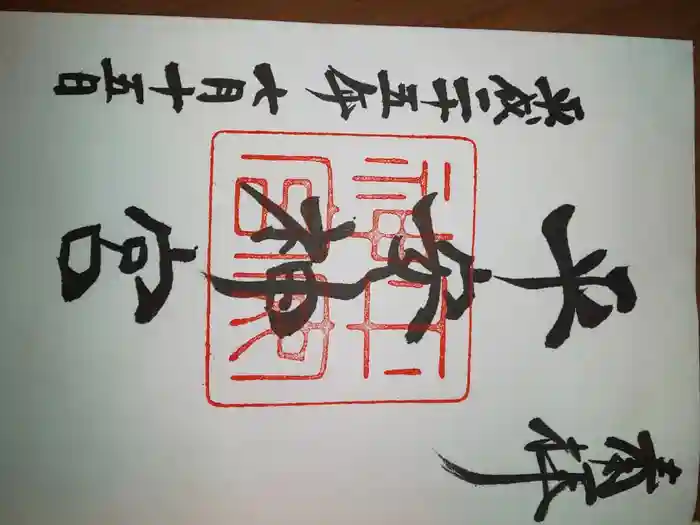 奉拝
平安神宮
平成二十五年六月十五日